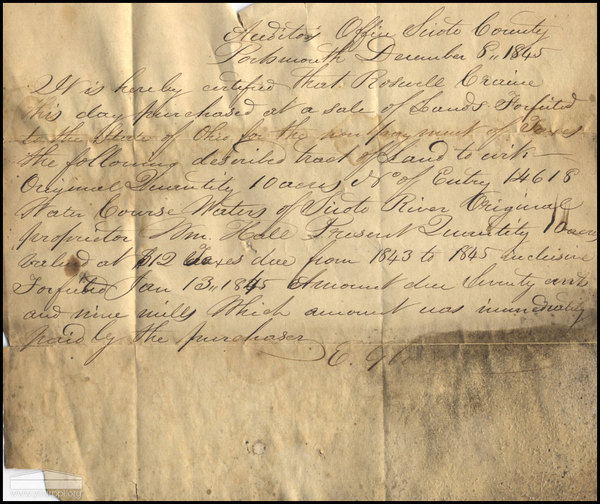 Auditor's Office Scioto County
Portsmouth December 8,, 1845
It is hereby certified that Roswell Craine
this day purchased at a sale of Lands Forfited
to the State of Ohio for the nonpayment of Taxes
the following described tract of Land to wit
Original Quantity 10 acres No of Entry 14618
Water Course Waters of Scioto River Original
proprietor Wm. Hall Present Quantity 10 acres
valued at $12 Taxes due from 1843 to 1845 inclusive
Forfited Jan 13,, 1845 Amount due Seventy cents
and nine mills Which amount was immediately
paid by the purchaser